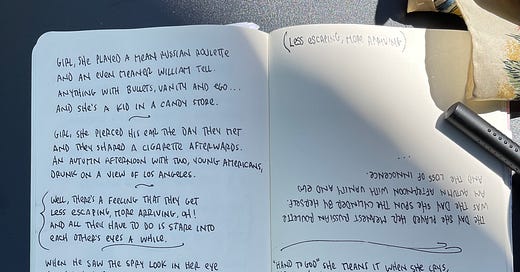 GIRL, SHE PLAYED A MEAN RUSSIAN ROULETTE
AND AN EVEN MEANER WILLIAM TELL.
ANYTHING WITH BULLETS, VANITY AND EGO...
AND SHE'S A KID IN A CANDY STORE.
GIRL, SHE PIERCED HIS EAR THE DAY THEY MET
AND THEY SHARED A CIGARETTE AFTERWARDS.
AN AUTUMN AFTERNOON WITH TWO, YOUNG AMERICANS,
DRUNK ON A VIEW OF LOS ANGELES.
WELL, THERE'S A FEELING THAT THEY GET
LESS ESCAPING, MORE ARRIVING, OH!
AND ALL THEY HAVE TO DO IS STARE INTO
EACH OTHERS EYES A WHILE.
WHEN HE SAW THE SPRY LOOK IN HER EYE
(LESS ESCAPING, MORE ARRIVING)
...
THE DAY SHE PLAYED HER MEANEST RUSSIAN ROULETTE
WAS THE DAY SHE SPUN THE CYLINDER BY HERSELF.
AN AUTUMN AFTERNOON WITH VANITY AND EGO
AND THE LOSS OF INNOCENCE.
"HAND TO GOD" SHE MEANS IT WHEN SHE CRYS,